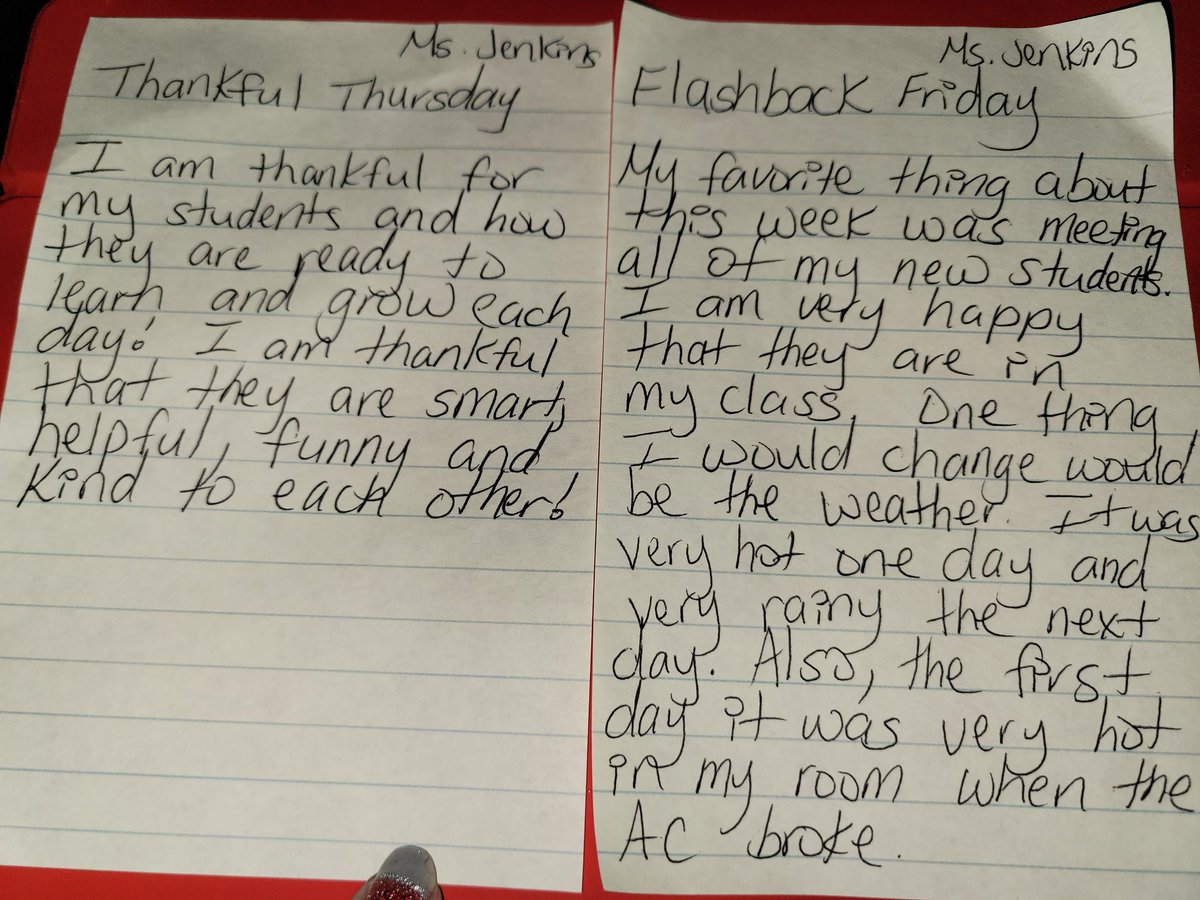 Ms. Jenkins
Thankful Thursday
I am thankful for
my students and how
they are ready to
learn and grow each
day! I am thankful
that they are smart,
helpful, funny and
kind to each other!
Ms. Jenkins
Flashback Friday
My favorite thing about
this week was meeting
all of my new students.
I am very happy
that they are in
my class. One thing
I would change would
be the weather. It was
very hot one day and
very rainy the next
day. Also, the first
day it was very hot
in my room when the
AC broke.